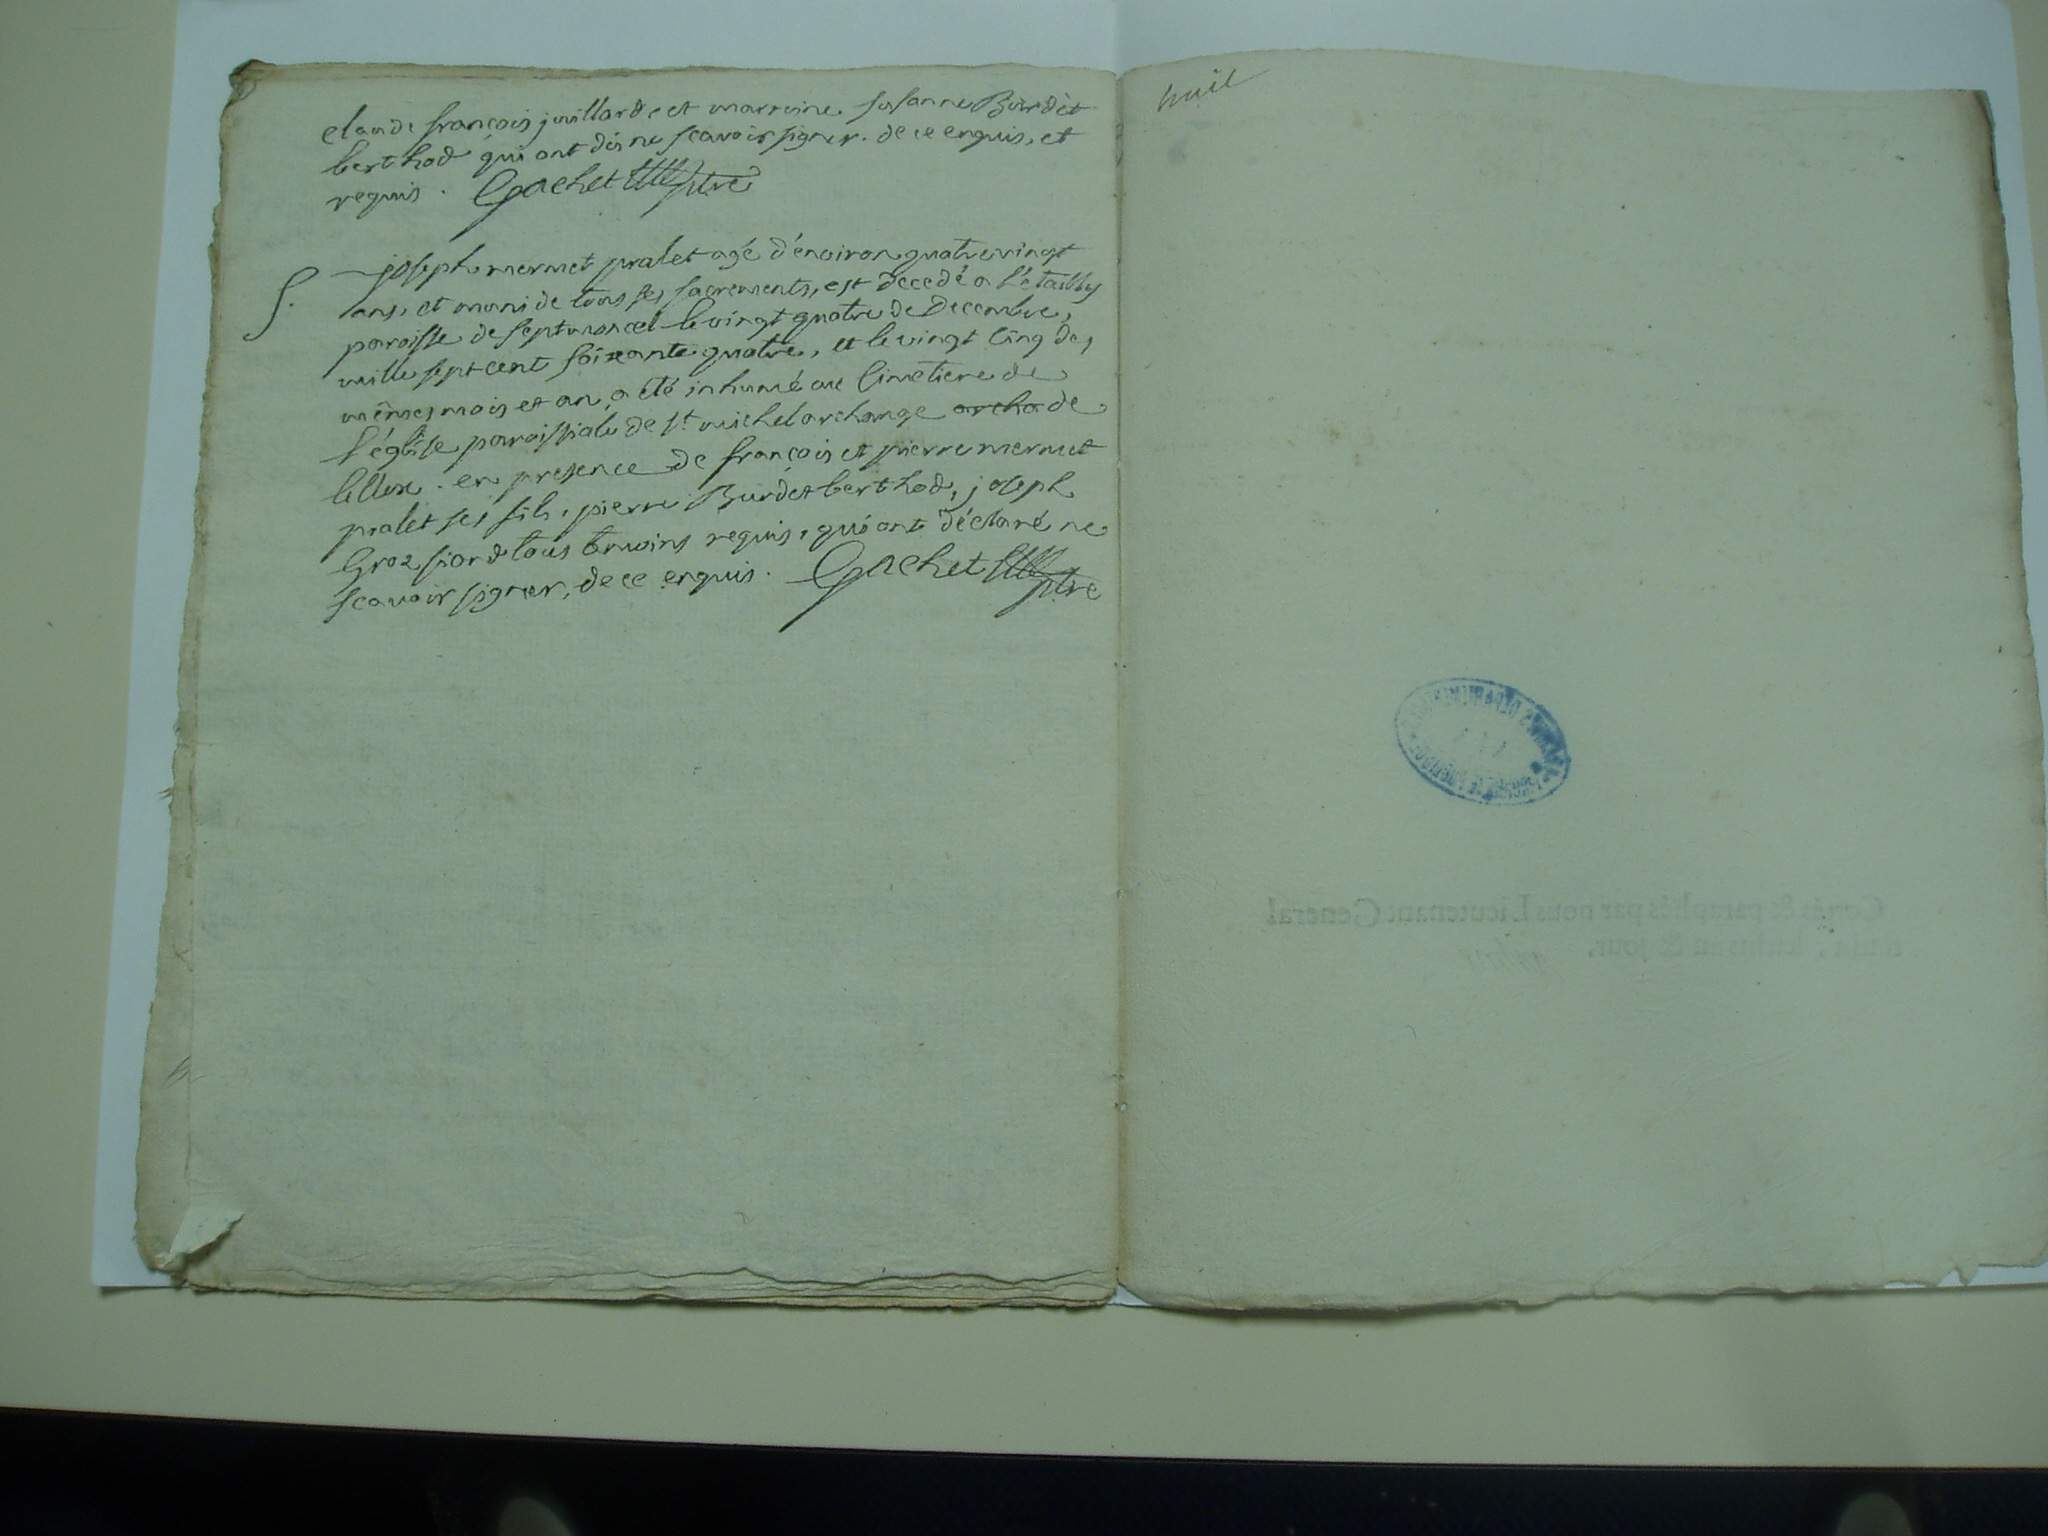 claude françois juillard, et marreine susanne Burdet
berthod qui ont dis ne scavoir signer. de ce enquis, et
requis. Gachet ptre
S. joseph mermet pralet agé d'environ quatre vingt
ans, et muni de tous ses sacrements, est decedé a
paroisse de septmoncel le vingt quatre de Decembre,
mille sept cent soixante quatre, et le vingt cinq des
mêmes mois et an, a été inhumé au Cimetiere de
l'église paroissiale de st michel archange archa de
lellex. en presence de françois et pierre mermet
pralet ses fils, pierre Burdet berthod, joseph
Groz fiord tous temoins requis, qui ont déclaré ne
scavoir signer, de ce enquis. Gachet ptre
huit
Cottés & paraphés par nous Lieutenant General
& jour.